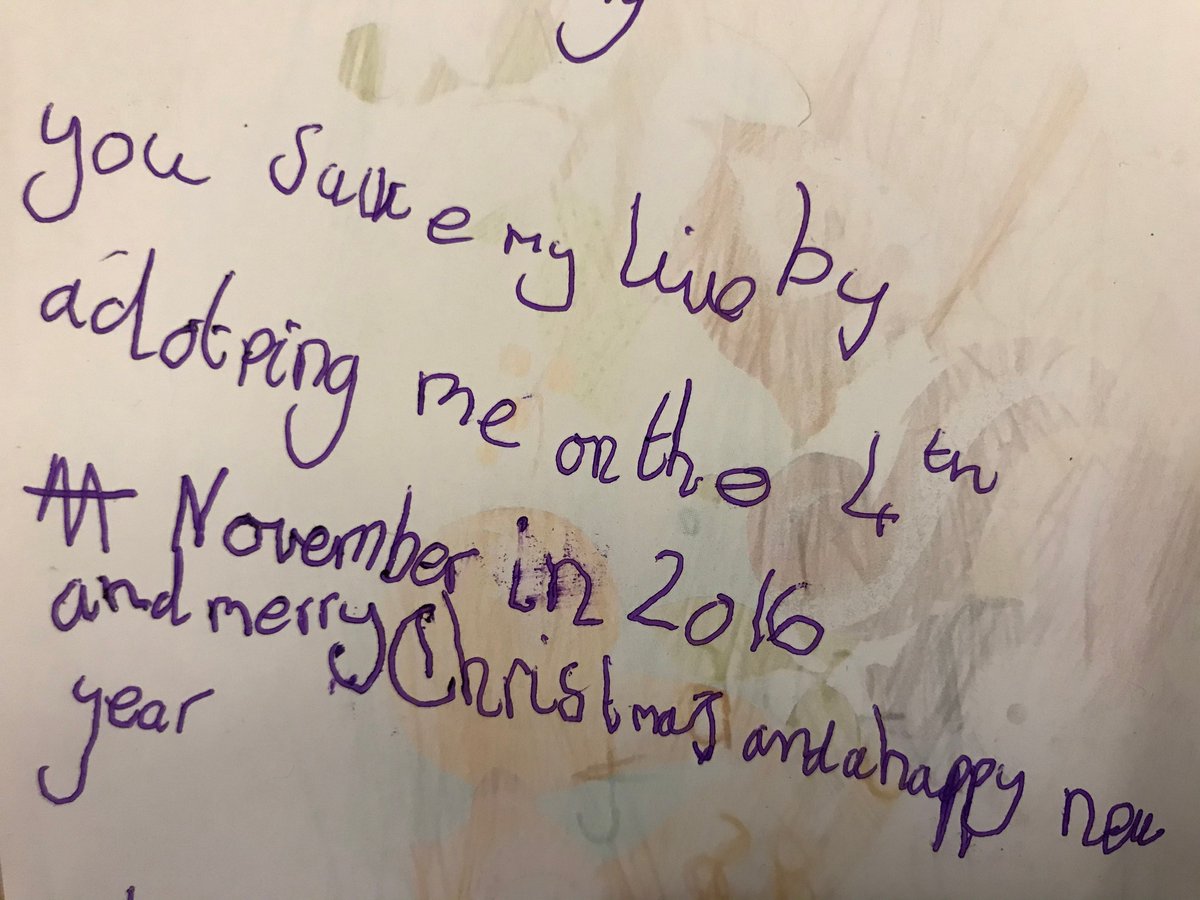 you save my live by
adotping me on the 4th
November in 2016
and merry Christmas and a happy new
year